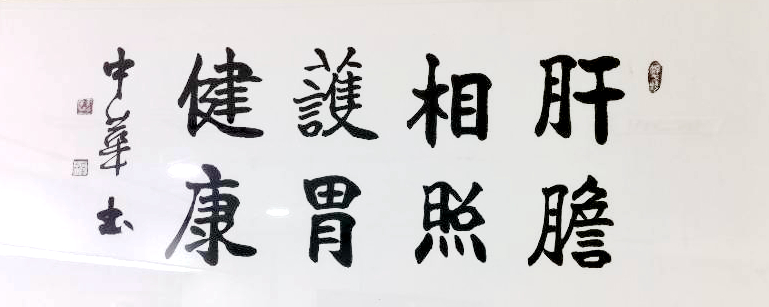 肝膽
相照
護胃
健康
中華书